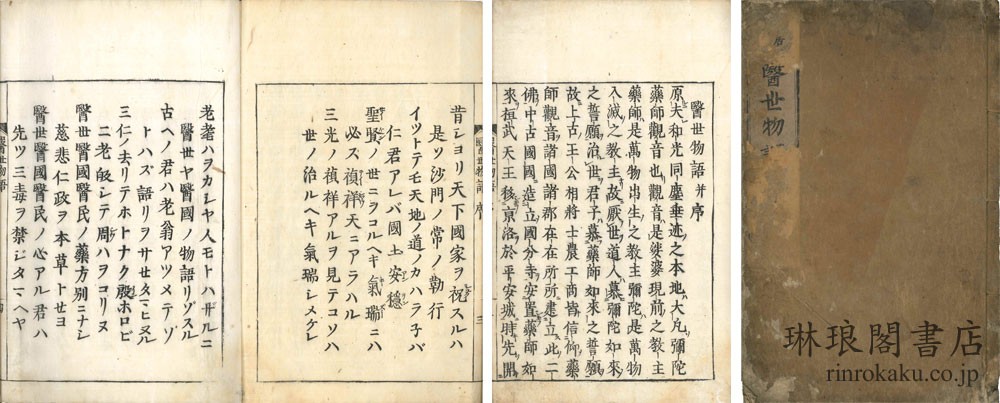 醫世物
醫世物語并序
原夫和光同塵垂迹之本地大凡彌陀
藥師觀音也觀音是娑婆現前之教主
藥師是萬物出生之教主彌陀是萬物
入滅之教主故厭世道人慕彌陀如來
之誓願治世君子慕藥師如來之誓願
故上古王公相將士農工商皆信仰藥
師觀音諸國諸郡在在所所建立此二
佛中古國國造立國分寺安置藥師如
來桓武天王移京洛於平安城時先開
醫世物語 序
三
昔シヨリ天下國家ヲ祝スルハ
是ソ沙門ノ常ノ勤行
イツトテモ天地ノ道ノカハラ子バ
仁君アレバ國土安穩
聖賢ノ世ニヲコルヘキ氣瑞ニハ
必ス禎祥天ニアラハル
三光ノ禎祥アルヲ見テコソハ
世ノ治ルヘキ氣瑞シメケレ
老耄ハヲカシヤ人モトハザルニ
醫世ヤ醫國ノ物語リヅスル
古ヘノ君ハ老翁アツメテゾ
トハズ語リヲサセタマヒヌル
三仁ノ去リテホトナク殷ホロビ
二老皈シテ周ハヲコリヌ
醫世醫國醫民ノ藥方別ニナシ
慈悲仁政ヲ本草トセヨ
醫世醫國醫民ノ心アル君ハ
先ツ三毒ヲ禁シタマヘヤ
醫世物語
琳琅閣書店
rinrokaku.co.jp